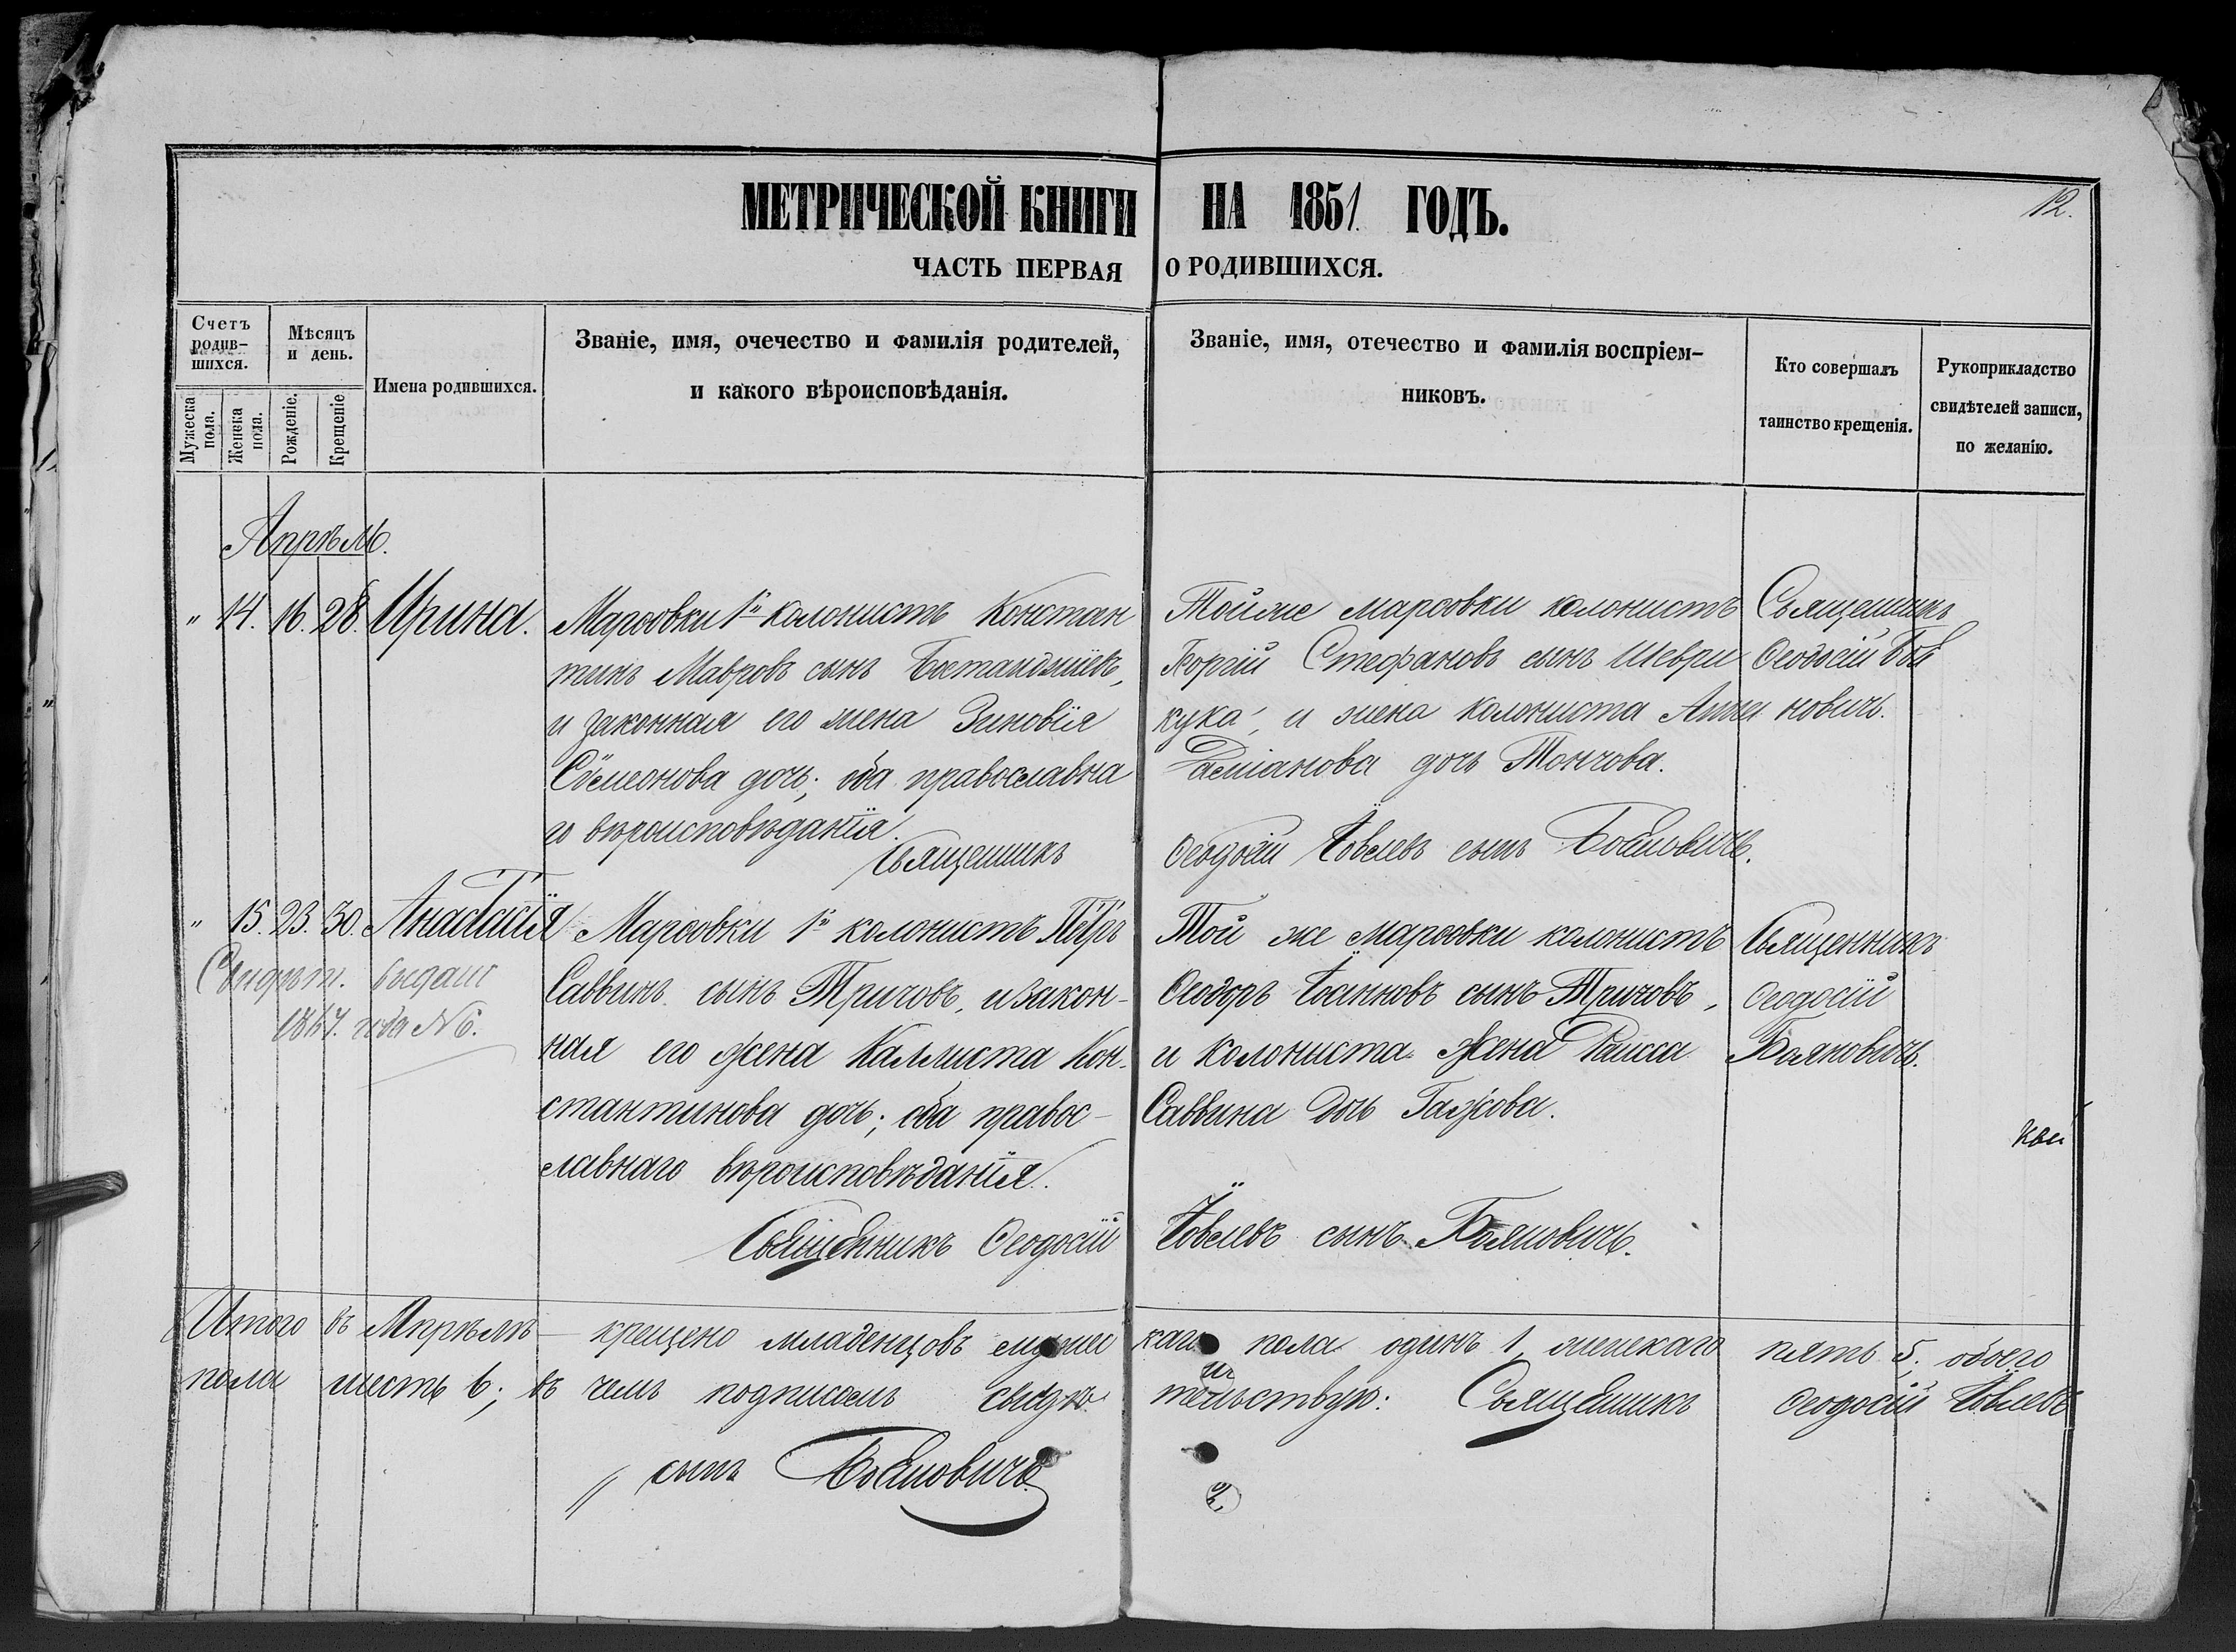 МЕТРИЧЕСКОЙ КНИГИ НА 1851 ГОДЪ.
12.
ЧАСТЬ ПЕРВАЯ О РОДИВШИХСЯ.
Счетъ родив-шихся.
Мужеска пола.
Женска пола.
Мѣсяцъ и день.
Рожденіе.
Крещеніе
Имена родившихся.
Званіе, имя, очечество и фамилія родителей,
и какого вѣроисповѣданія.
Званіе, имя, отечество и фамилія воспріем-
никовъ.
Кто совершалъ
таинство крещенія.
Рукоприкладство
свидѣтелей записи,
по желанію.
Апрѣль.
" 14. 16. 28. Ирина.
колонистъ Констан
тинъ Мавровъ сынъ
и законная его жена Зиновія
Сѵмеонова дочь; оба православна
го вѣроисповѣданія.
Священникъ
колонистъ
Стефановъ сынъ
и жена колониста Анна
дочь Тончова.
Ѳеодосій Іовлевъ сынъ Бояновичъ.
Священникъ
Ѳеодосій Боя
новичъ.
" 15. 23. 30. Анастасія
Свидѣт. выдано
года №6.
колонистъ Петръ
Саввинъ сынъ Тричовъ, и закон-
ная его жена Каллиста Кон-
стантинова дочь; оба правос-
лавнаго вѣроисповѣданія.
Священникъ Ѳеодосій
Той же колонистъ
Ѳеодоръ Іоанновъ сынъ Тричовъ,
и колониста жена Раисса
Саввина дочь
Іовлевъ сынъ Бояновичъ.
Священникъ
Ѳеодосій
Бояновичъ.
Итого въ Апрѣлѣ крещено младенцовъ мужес каго пола одинъ 1, женскаго пять 5, обоего
пола шесть 6; въ чемъ подписомъ свидѣ тельствую: Священникъ Ѳеодосій Іовлевъ
" сынъ Бояновичъ